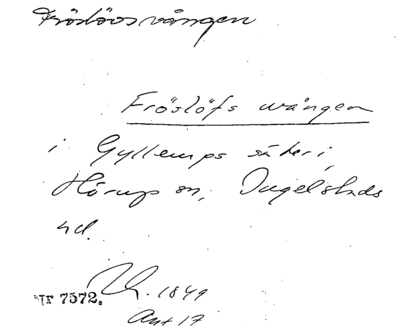 Fröslövsvången
Fröslöfs wången
i Gyllerups säteri,
Hörups sn, Ingelstads
hd.
Nr 7572. 1849
Akt 17